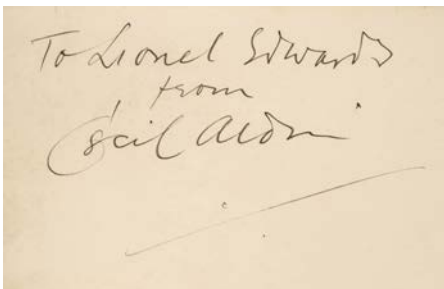 To Lionel Edwards
from
Cecil Aldin